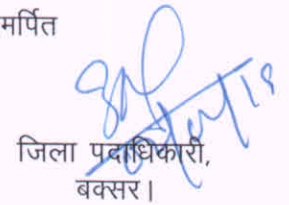 मर्पित
जिला पदाधिकारी,
बक्सर।